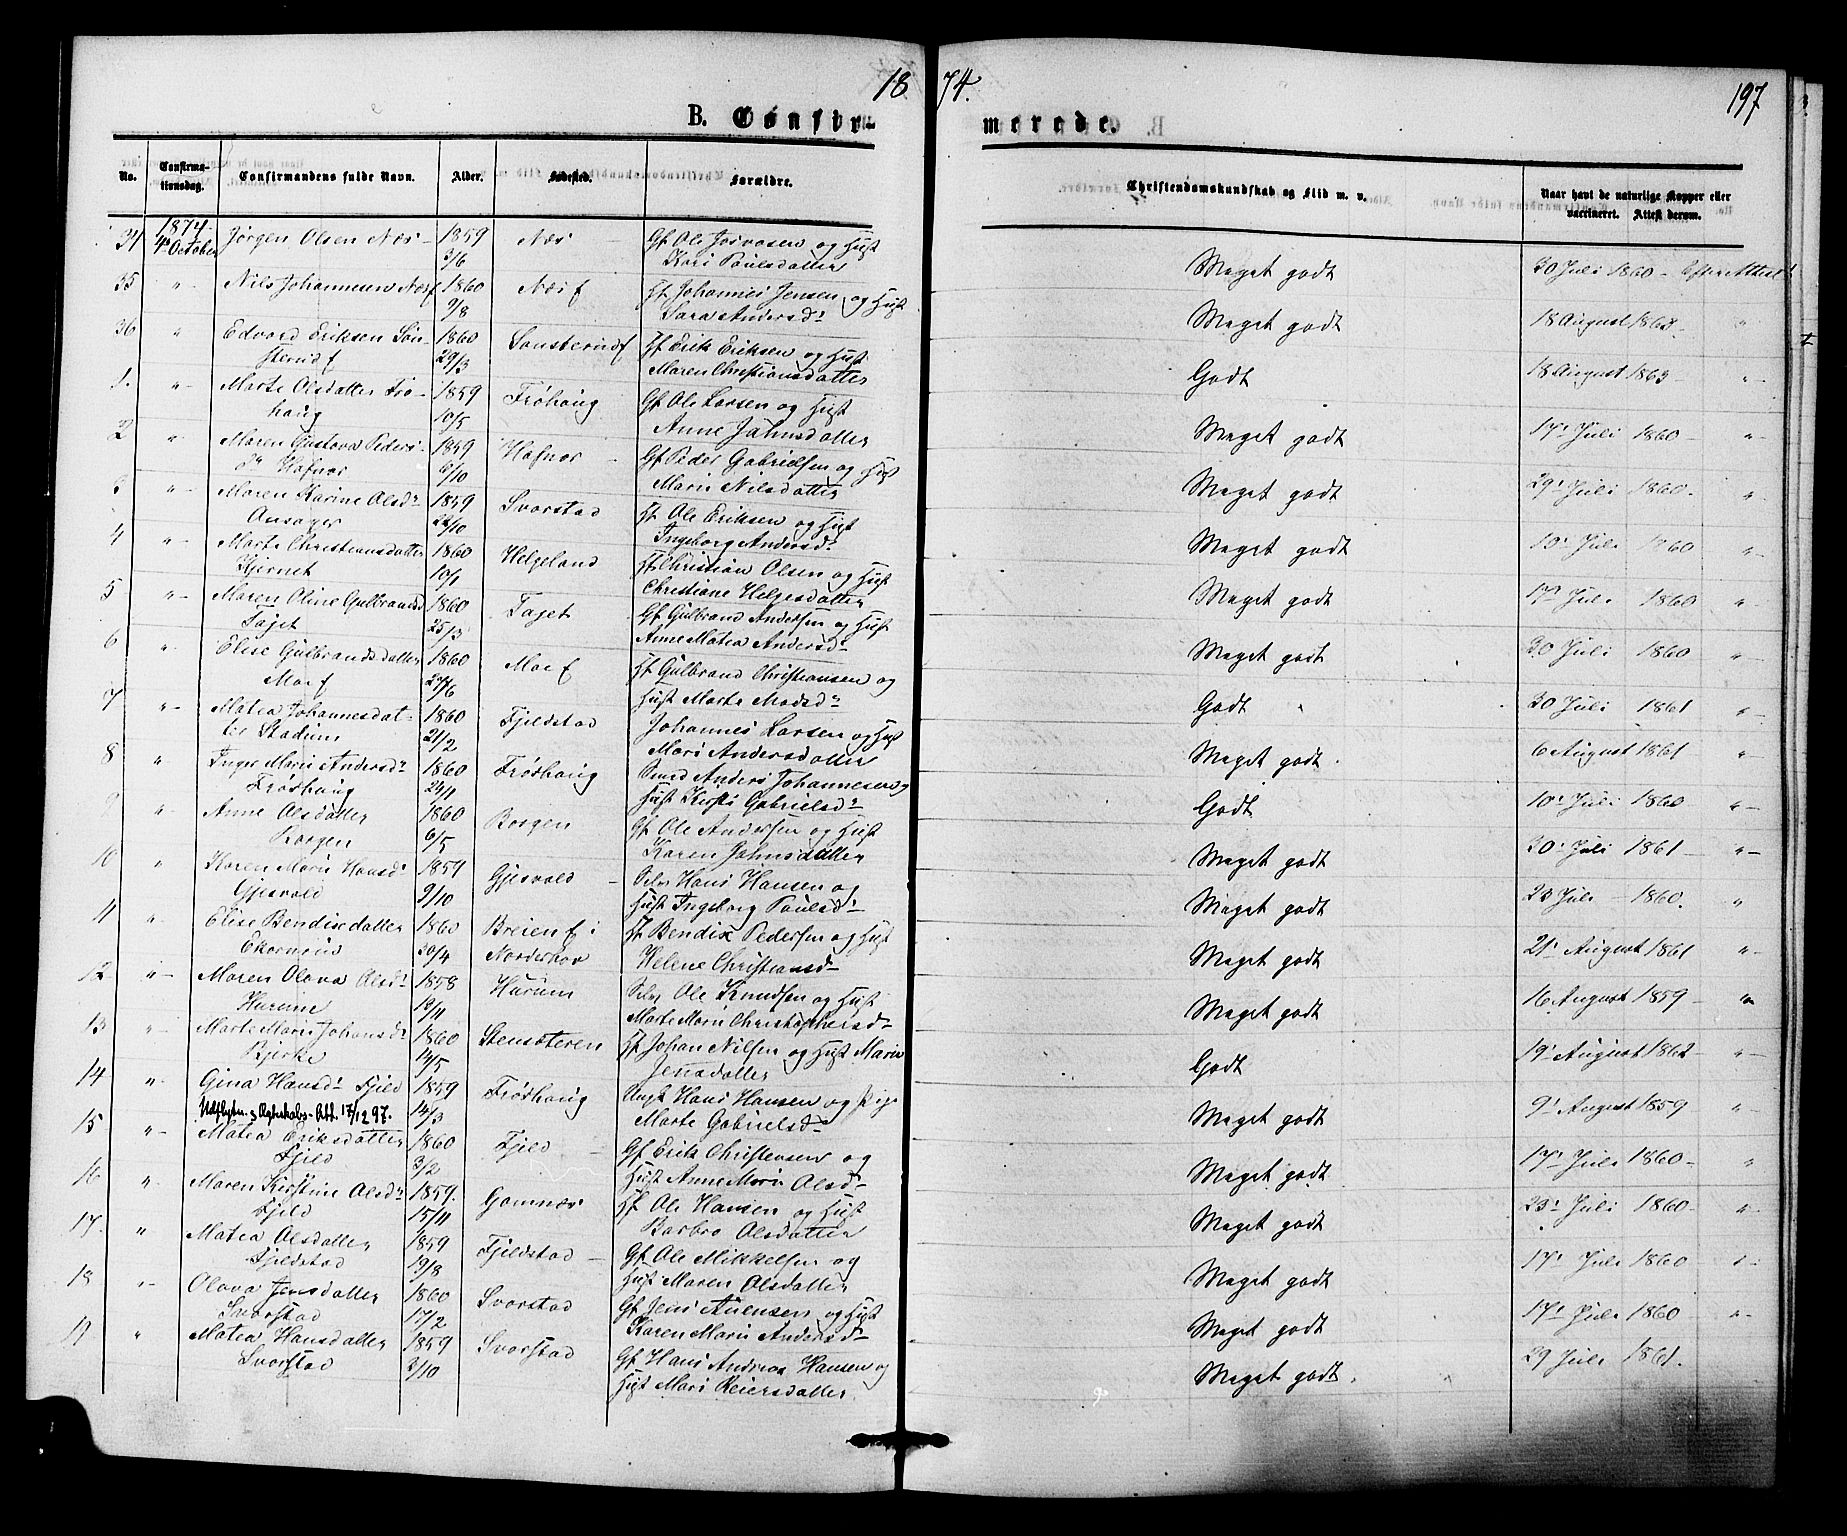 18 74. 197
B. Confir- merede.
No. Confirma-tionsdag. Confirmandens fulde Navn. Alder. Fødested. Forældre. Christendomskundskab og Flid m. v. Naar havt de naturlige Kopper eller vaccineret. Attest derom.
1874
34 4de October Jørgen Olsen Næs 1859 3/6 Næs Gf Ole Josvasen og Hust Kari Paulsdatter Meget godt 30 Juli 1860 - Efter Attest
35 " Nils Johannesen Næs f 1860 9/8 Næs f Hf Johannes Jensen og Hust Sara Andersdr Meget godt 18 August 1863 - "
36 " Edvard Eriksen Søn-sterud f 1860 29/3 Sønsterud f Hf Erik Eriksen og Hust Maren Christiansdatter Godt 18 August 1863 - "
1. " Marte Olsdatter Frø-haug 1859 10/5 Frøhaug Gf Ole Larsen og Hust Anne Jahnsdatter Meget godt 17de Juli 1860 - "
2 " Maren Gustava Peders-dr Hafnor 1859 6/10 Hafnor Gf Peder Gabrielsen og Hust Mari Nilsdatter Meget godt 29de Juli 1860. "
3 " Maren Karine Olsdr Onsager 1859 22/10 Svarstad Hf Ole Eriksen og Hust Ingeborg Andersdr Meget godt Juli 1860 "
4 " Marte Christiansdatter Hjernet 1860 10/1 Helgeland Hf Christian Olsen og Hust Christiane Helgesdatter Meget godt 17de Juli 1860 "
5 " Maren Oline Gulbrandsd Faget 1860 25/3 Faget Gf Gulbrand Andersen og Hust Anne Matea Andersdr Meget godt 30 Juli 1860 "
6 " Elise Gulbrandsdatter Moe f 1860 27/6 Moe f Hf Gulbrand Christiansen og Hust Marte Madsdr Godt 30 Juli 1861 "
7 " Matea Johannesdat-ter Stadum 1860 21/2 Fjeldstad Johannes Larsen og Hust Mari Andersdatter Meget godt 6 August 1861 "
8 " Inger Marie Andersdr Frøshaug 1860 24/1 Frøshaug Smed Anders Johannesen og Hust Kirsti Gabrielsdr Godt 10de Juli 1860 "
9 " Anne Olsdatter Borgen 1860 6/5 Borgen Gf Ole Andersen og Hust Karen Jahnsdatter Meget godt 30de Juli 1861 - "
10 " Karen Marie Hansdr Gjesvold 1859 9/10 Gjesvold Selv Hans Hansen og Hust Ingeborg Paulsdr Meget godt 23 Juli - 1860. "
11 " Elise Bendixdatter Ekornrud 1860 30/4 Breien f i Norderhov Hf Bendix Pedersen og Hust Helene Christiansdr Meget godt 21de August 1861 "
12 " Maren Olava Olsdr Harum 1858 Harum Selv Ole Knudsen og Hust Marte Marie Christophersdr Meget godt 16 August 1859 - "
13 " Marte Marie Johansdr Bjerke 1860 14/5 Stensæteren Hf Johan Nilsen og Hust Marie Jensdatter Godt 19de August 1862 - "
14 " Gina Hansdr Fjeld 1859 14/3 Frøshaug Ungk Hans Hansen og Pige Marte Gabrielsdr Meget godt 9de August 1859 "
Udflytn. & Ægteskabs-Att. 17/12 97.
15 " Matea Eriksdatter Fjeld 1860 3/2 Fjeld Gf Erik Christensen og Hust Anne Marie Olsdr Meget godt 17de Juli 1860 - "
16 " Maren Kirstine Olsdr Fjeld 1859. 15/11 Gomnæs Hf Ole Hansen og Hust Barbro Olsdatter Meget godt 23de Juli 1860 "
17 " Matea Olsdatter Fjeldstad 1859 19/8 Fjeldstad Gf Ole Mikkelsen og Hust Maren Olsdatter Meget godt 17de Juli 1860 "
18 " Olava Jensdatter Svarstad 1860 17/2 Svarstad Gf Jens Auensen og Hust Karen Marie Andersdr Meget godt 17de Juli 1860 "
19 " Matea Hansdatter Svarstad 1859 3/10 Svarstad Gf Hans Andreas Hansen og Hust Mari Reiersdatter Meget godt 29 Juli 1861.